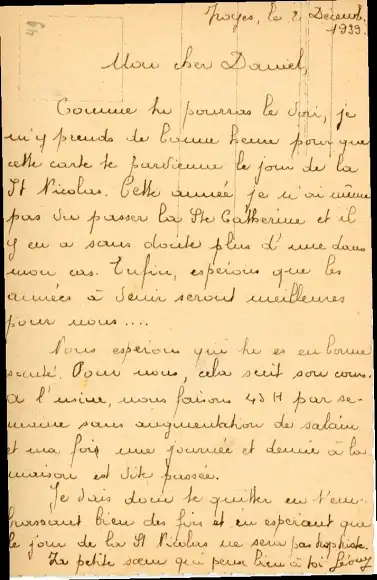 49
Troyes, le 2 Décemb.
1939.
Mon cher Daniel,
Comme tu pourras le voir, je
m'y prends de bonne heure pour que
cette carte te parvienne le jour de la
St Nicolas. Cette année je n'ai même
pas vu passer la Ste Catherine et il
y en a sans doute plus d'une dans
mon cas. Enfin, espérons que les
années à venir seront meilleures
pour nous....
Nous espérons que tu es en bonne
santé. Pour nous, cela suit son cours.
A l'usine, nous faisons 43 H par se-
maine sans augmentation de salaire
et ma foi une journée et demie à la
maison est vite passée.
Je vais donc te quitter en t'em-
brassant bien des fois et en espérant que
le jour de la St Nicolas ne sera pas trop triste.
Ta petite sœur qui pense bien à toi